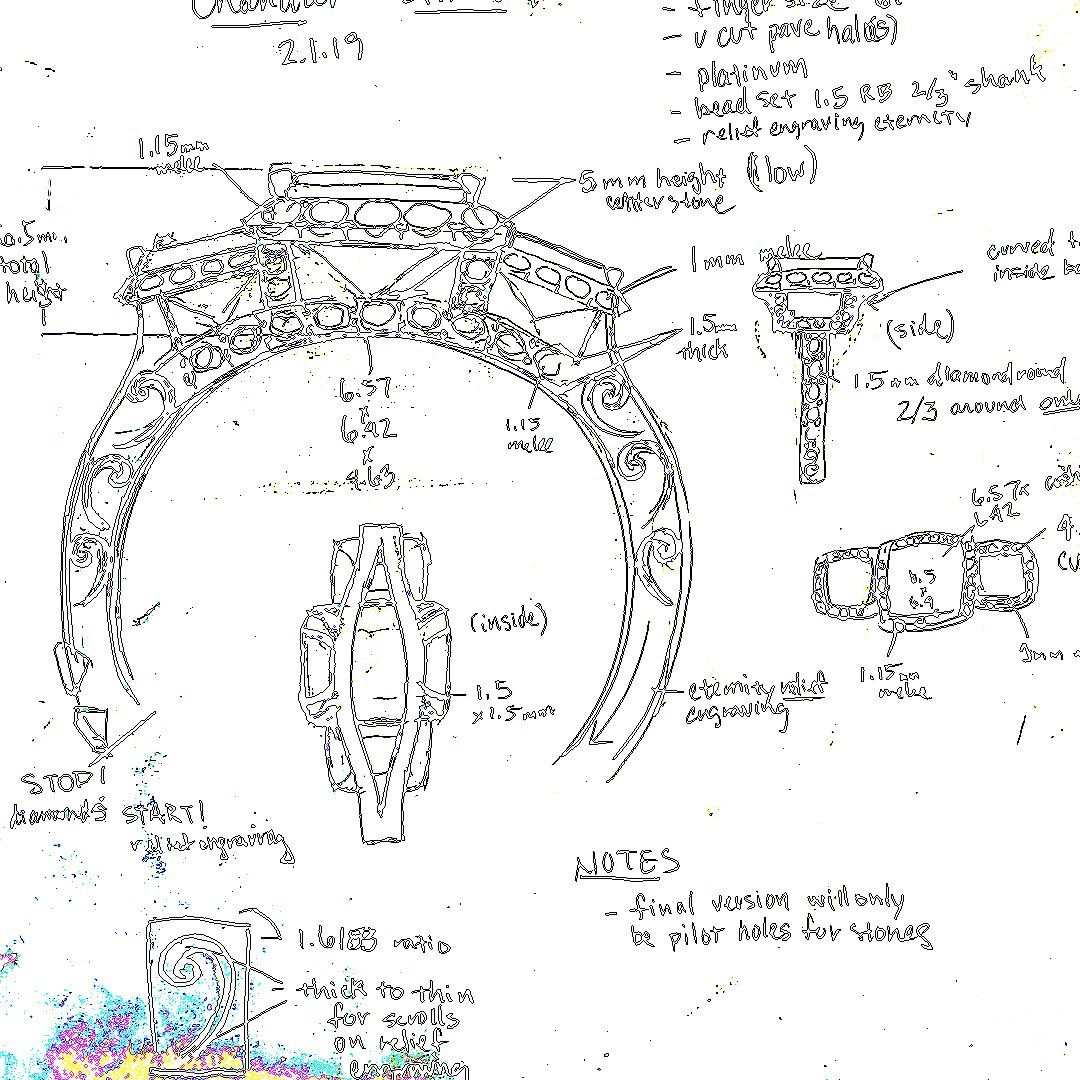 2.1.19
- finger size
- v cut pave
- platinum
- bead set 1.5 RB 2/3 shank
- relief engraving eternity
1.15mm
melee
5 mm height (low)
center stone
total
height
1 mm melee
inside
(side)
1.5mm
thick
1.5 mm diamond round
2/3 around only
6.57
x
6.42
x
4.63
1.15
melee
6.57x
6.42
(inside)
1.5
x1.5mm
1.15mm
melee
eternity relief
engraving
STOP!
diamonds START!
relief engraving
NOTES
- final version will only
be pilot holes for stones
1.6188 ratio
thick to thin
for scrolls
on relief
engraving